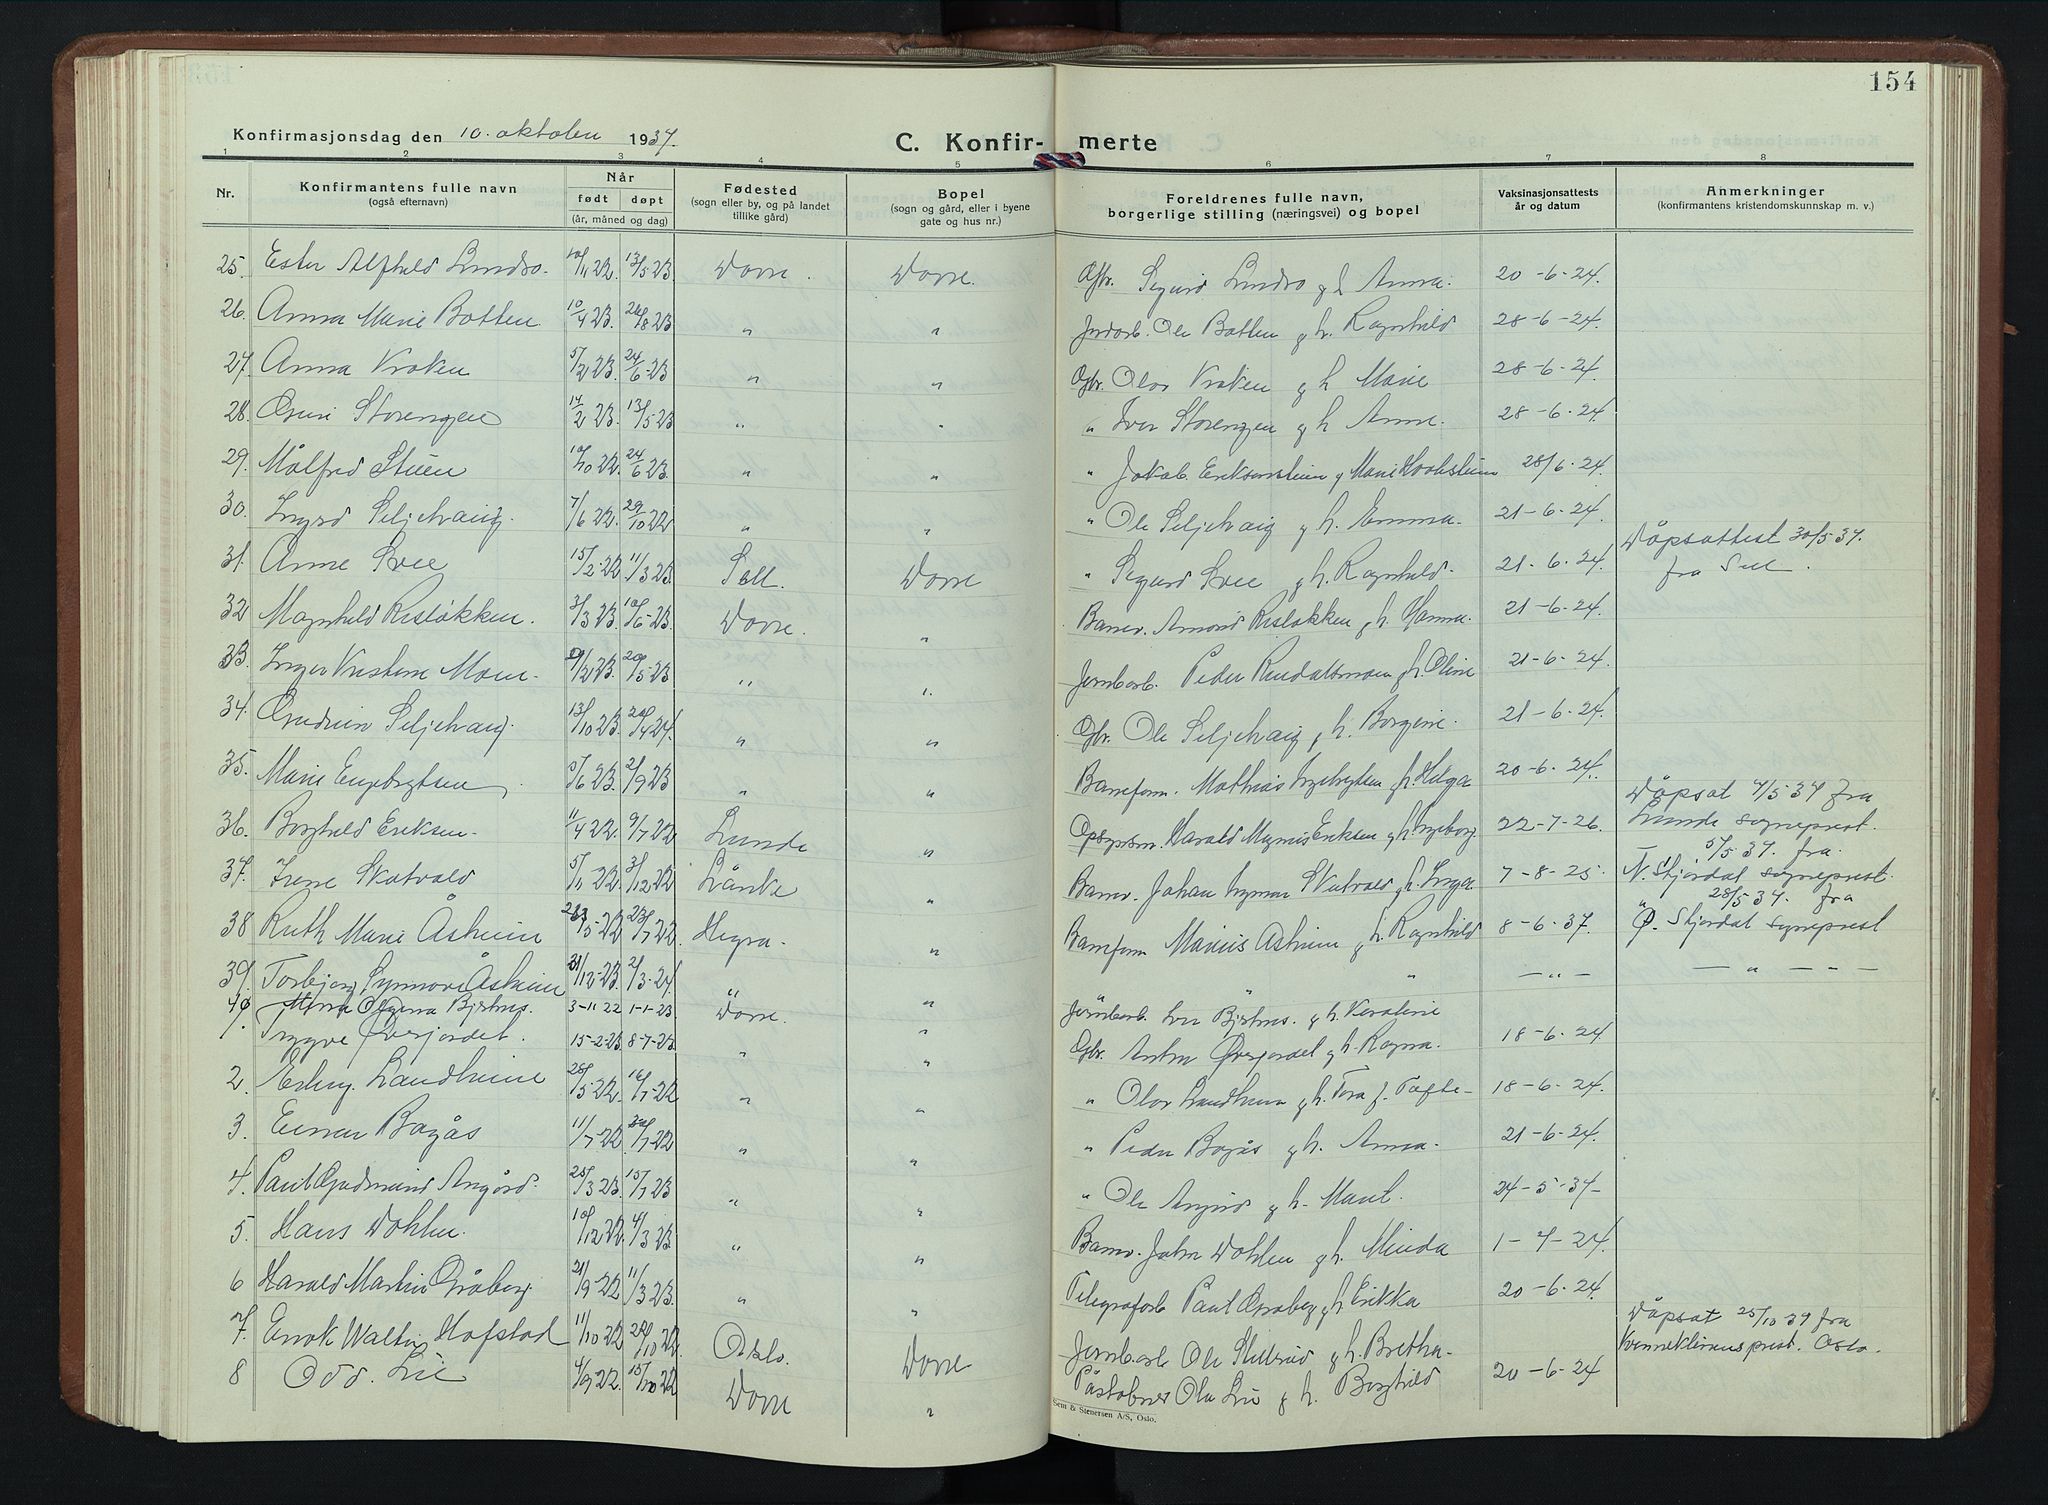 154
Konfirmasjonsdag den 10. oktober 1937.
C. Konfirmerte
1 2 3 4 5 6 7 8
Nr.
Konfirmantens fulle navn
(også efternavn)
Når
født døpt
(år, måned og dag)
Fødested
(sogn eller by, og på landet
tillike gård)
Bopel
(sogn og gård, eller i byene
gate og hus nr.)
Foreldrenes fulle navn,
borgerlige stilling (næringsvei) og bopel
Vaksinasjonsattests
år og datum
Anmerkninger
(konfirmantens kristendomskunnskap m. v.)
25. Ester Alfhild Lundso. 10/11 22. 13/5 23 Dovre. Dovre. Gbr. Sigurd Lundso g h Anna. 20-6-24.
26. Anna Marie Botten. 10/4 23. 26/8 23 " " Jordarb. Ole Botten g h. Ragnhild 28-6-24.
27. Anna Kroken 5/2 23. 24/6-23 " " Gbr. Olav Kroken g h Marie 28-6-24.
28. Guri Storengen 14/2 23. 13/5 23 " " " Iver Storengen g h Anne. 28-6-24.
29. Målfrid Stuen 10/10 22. 24/6 23. " " " Jakob Eriksenstuen g Marie 28/6-24.
30. Ingrid Seljehaug. 7/6 22. 29/10 22 " " " Ole Seljehaug g h. Emma. 21-6-24.
31. Anne Svee 15/2-22 11/3 23 Sell. Dovre " Sigurd Svee g h. Ragnhild. 21-6-24. Dåpsattest 30/5-37.
fra Sel.
32 Magnhild Risløkken. 3/3 23. 10/6-23. Dovre. " Banev. Amund Risløkken g h. Hanna. 21-6-24.
33. Inger Kristine Moen. 23. 20/5-23 " " Jernbarb. Peder Rindalsmoen g h. Oline 21-6-24.
34. Gudrun Seljehaug. 13/10 23. 20/4 24. " " Gbr. Ole Seljehaug g h. Borgine. 21-6-24.
35. Marie Engebrigtsen /6 23. 2/9 23 " " Baneform. Mathias Ingebrigtsen g h. Helga 20-6-24.
36. Borghild Eriksen. 11/4 22. 9/7 22 Lunde " Harald Magnus Eriksen g h. Ingeborg. 22-7-26. Dåpsat 4/5 37 fra
Lunde sogneprest.
37. Irene Skatvold 5/11 22. 31/12 22 Lånke " Banev. Johan Skatvold g h. Inga 7-8-25. 5/5 37. fra.
N. Stjørdal sogneprest.
38 Ruth Marie Åsheim 23/5-22 23/7 22. Hegra. " Baneform Marius Åsheim g h. Ragnhild 8-6-37. 28/5 37. fra
Ø. Stjørdal sogneprest
39. Torbjørg Synnøve Åsheim 31/12-23. 2/3-24. " " " " -"- - " - - -
40. Olgena 3-11 22 1-1-23. Dovre. " Jernbarb. g h. Karoline
1. Trygve Øverjordet. 15-2-23. 8-7-23. " " Gbr. Anton Øverjordet g h. Ragna. 18-6-24
2 Erling Landheim 28/5-22. 16/7-22 " " " Olav Landheim g h. Tora f. Tofte 18-6-24.
3. Einar Bagås 11/7-22. 30/7-22 " " " Peder Bagås g h. Anna. 21-6-24.
4. Paul Gudmund Angård. 25/3 23. 15/7 23 " " " Ole Angård g h. Marit. 24-5-37-
5. Hans Dohlen. 10/12 22. 4/3 23 " " Banev. John Dohlen g h. Minda 1-4-24.
6 Harald Martin Gråberg. 21/9-22 11/3 23. " " Telegrafarb Paul Gråberg g h Erikka 20-6-24.
7. Enok Walter Hofstad 11/10 22 29/10 22 Oslo. Dovre Jernbarb Ole g h. Bretha. Dåpsat 25/10 37 fra
Oslo.
8 Odd. Lie 4/9 22. 15/10 22 Dovre " Ola Lie g h. Borghild 20-6-24
Sem & Stenersen A/S, Oslo.